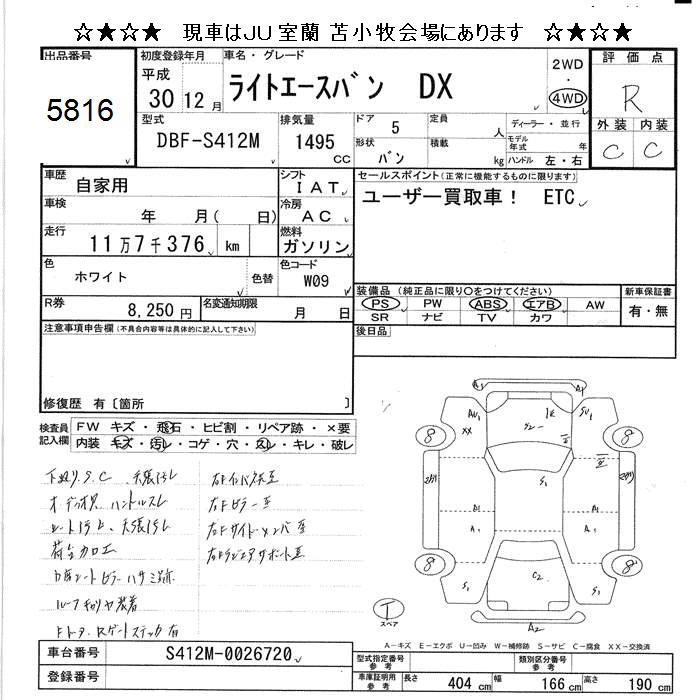 ☆★☆★ 現車はJU室蘭 苫小牧会場にあります ☆★☆★
出品番号
5816
初度登録年月
平成
30 12 月
車名・グレード
ライトエースバン DX
2WD
・
4WD
評価点
R
外装 内装
C C
型式
DBF-S412M
排気量
1495
CC
ドア 5
形状 バン
定員 人
積載 kg
ディーラー・並行
モデル
年式 年
ハンドル 左・右
車歴
自家用
車検
年 月( 日)
走行
11万7千376 km
色
ホワイト
色替
R券
8,250円
名変通知期限
月 日
シフト
IAT
冷房
AC
燃料
ガソリン
色コード
W09
セールスポイント(正常に機能するものに限ります)
ユーザー買取車! ETC
装備品 (純正品に限り○をつけてください)
PS PW ABS エアB AW
SR ナビ TV カワ
新車保証書
有・無
後日品
注意事項申告欄(不具合内容等は具体的に記入して下さい)
修復歴 有〔箇所 〕
検査員
記入欄
FW キズ・飛石・ヒビ割・リペア跡・×要
内装 キズ・汚レ・コゲ・穴・スレ・キレ・破レ
下ぬり.S.C 天張汚レ
ハンドルスレ
シート汚レ 天張汚レ
荷台カロエ
ルーフキャリヤ装着
A1
A1
AU1
XX
1k
SU1
S2
8
8
8
8
S1
A1
A1
A1
A1
S1
C2
S1
A2
T
スペア
A-キズ E-エクボ U-凹み W-補修跡 S-サビ C-腐食 XX-交換済
車台番号
S412M-0026720
登録番号
型式指定番号
参考
類別区分番号
参考
車庫証明用
参考
長さ 404 cm
幅 166 cm
高さ 190 cm